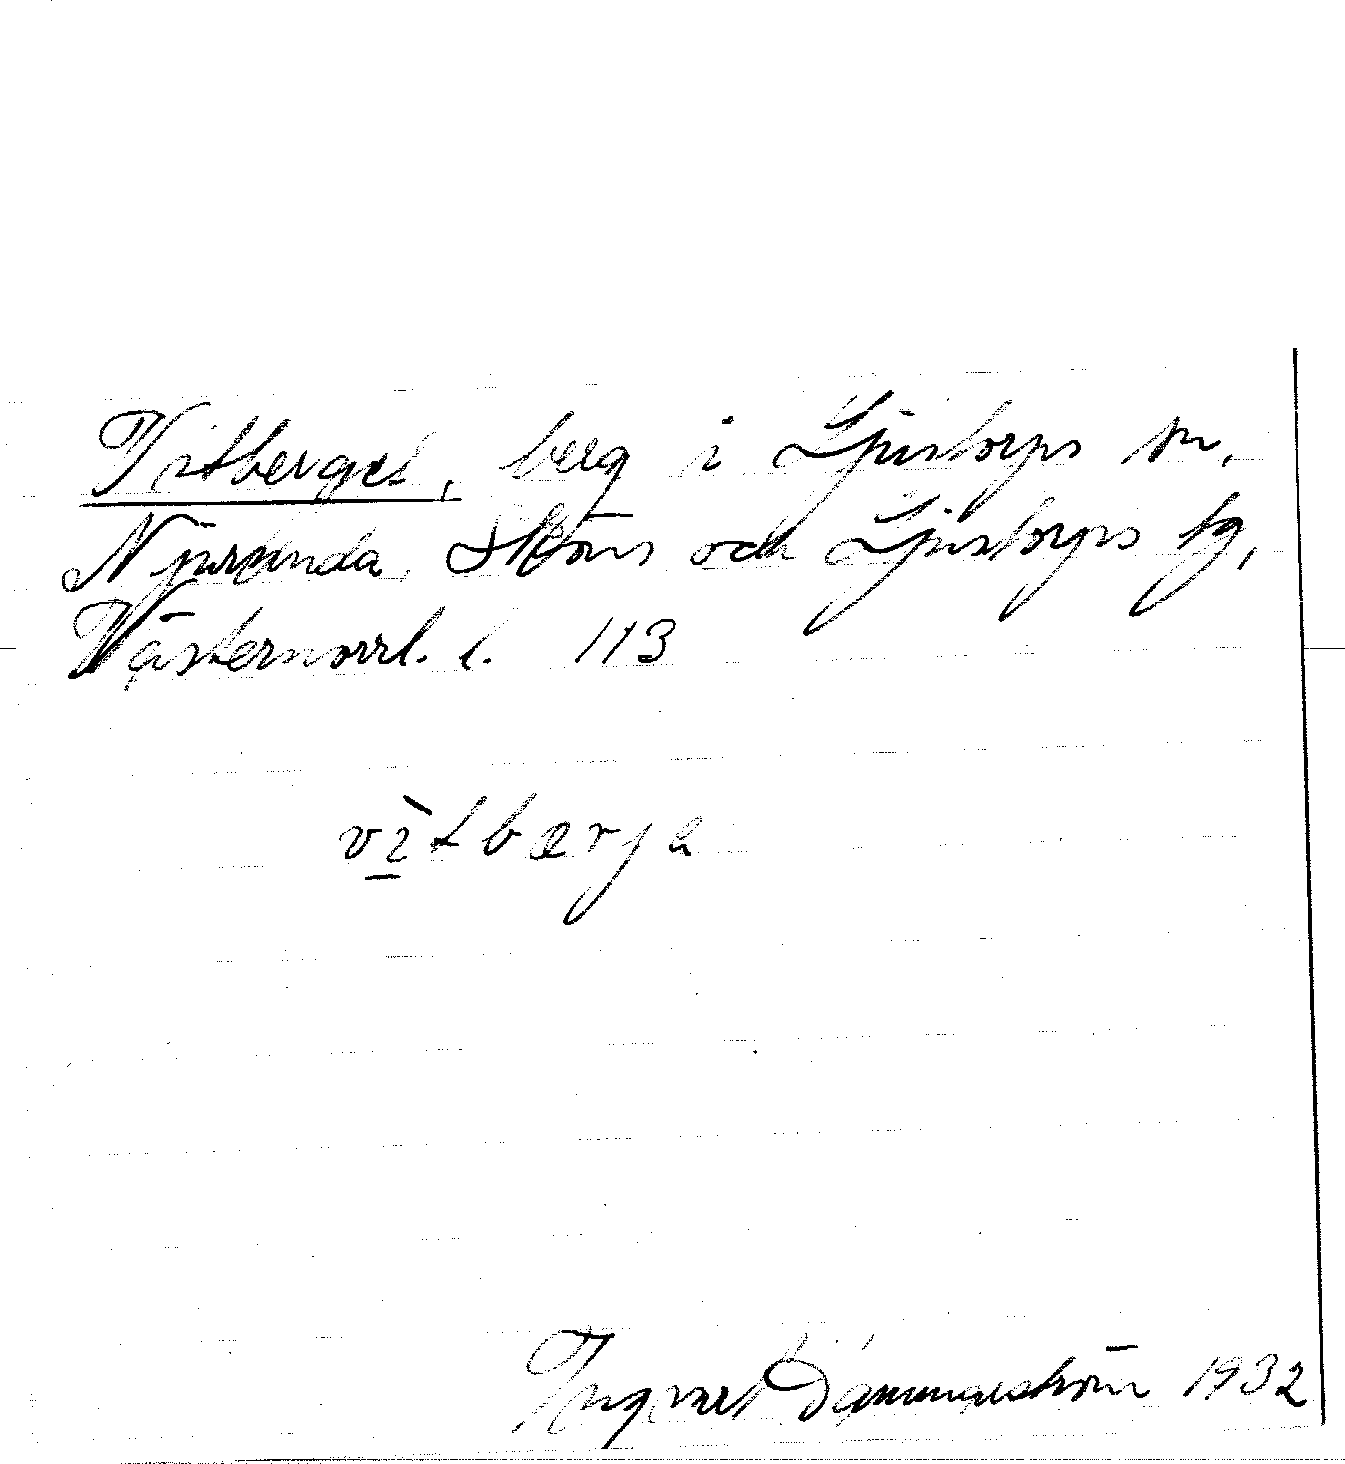 Vitberget, berg i Ljustorps sn,
Njurunda, Sköns och Ljustorps tg,
Västernorrl. l. 113
vìtbærja
Ingvart Dämmeström 1932